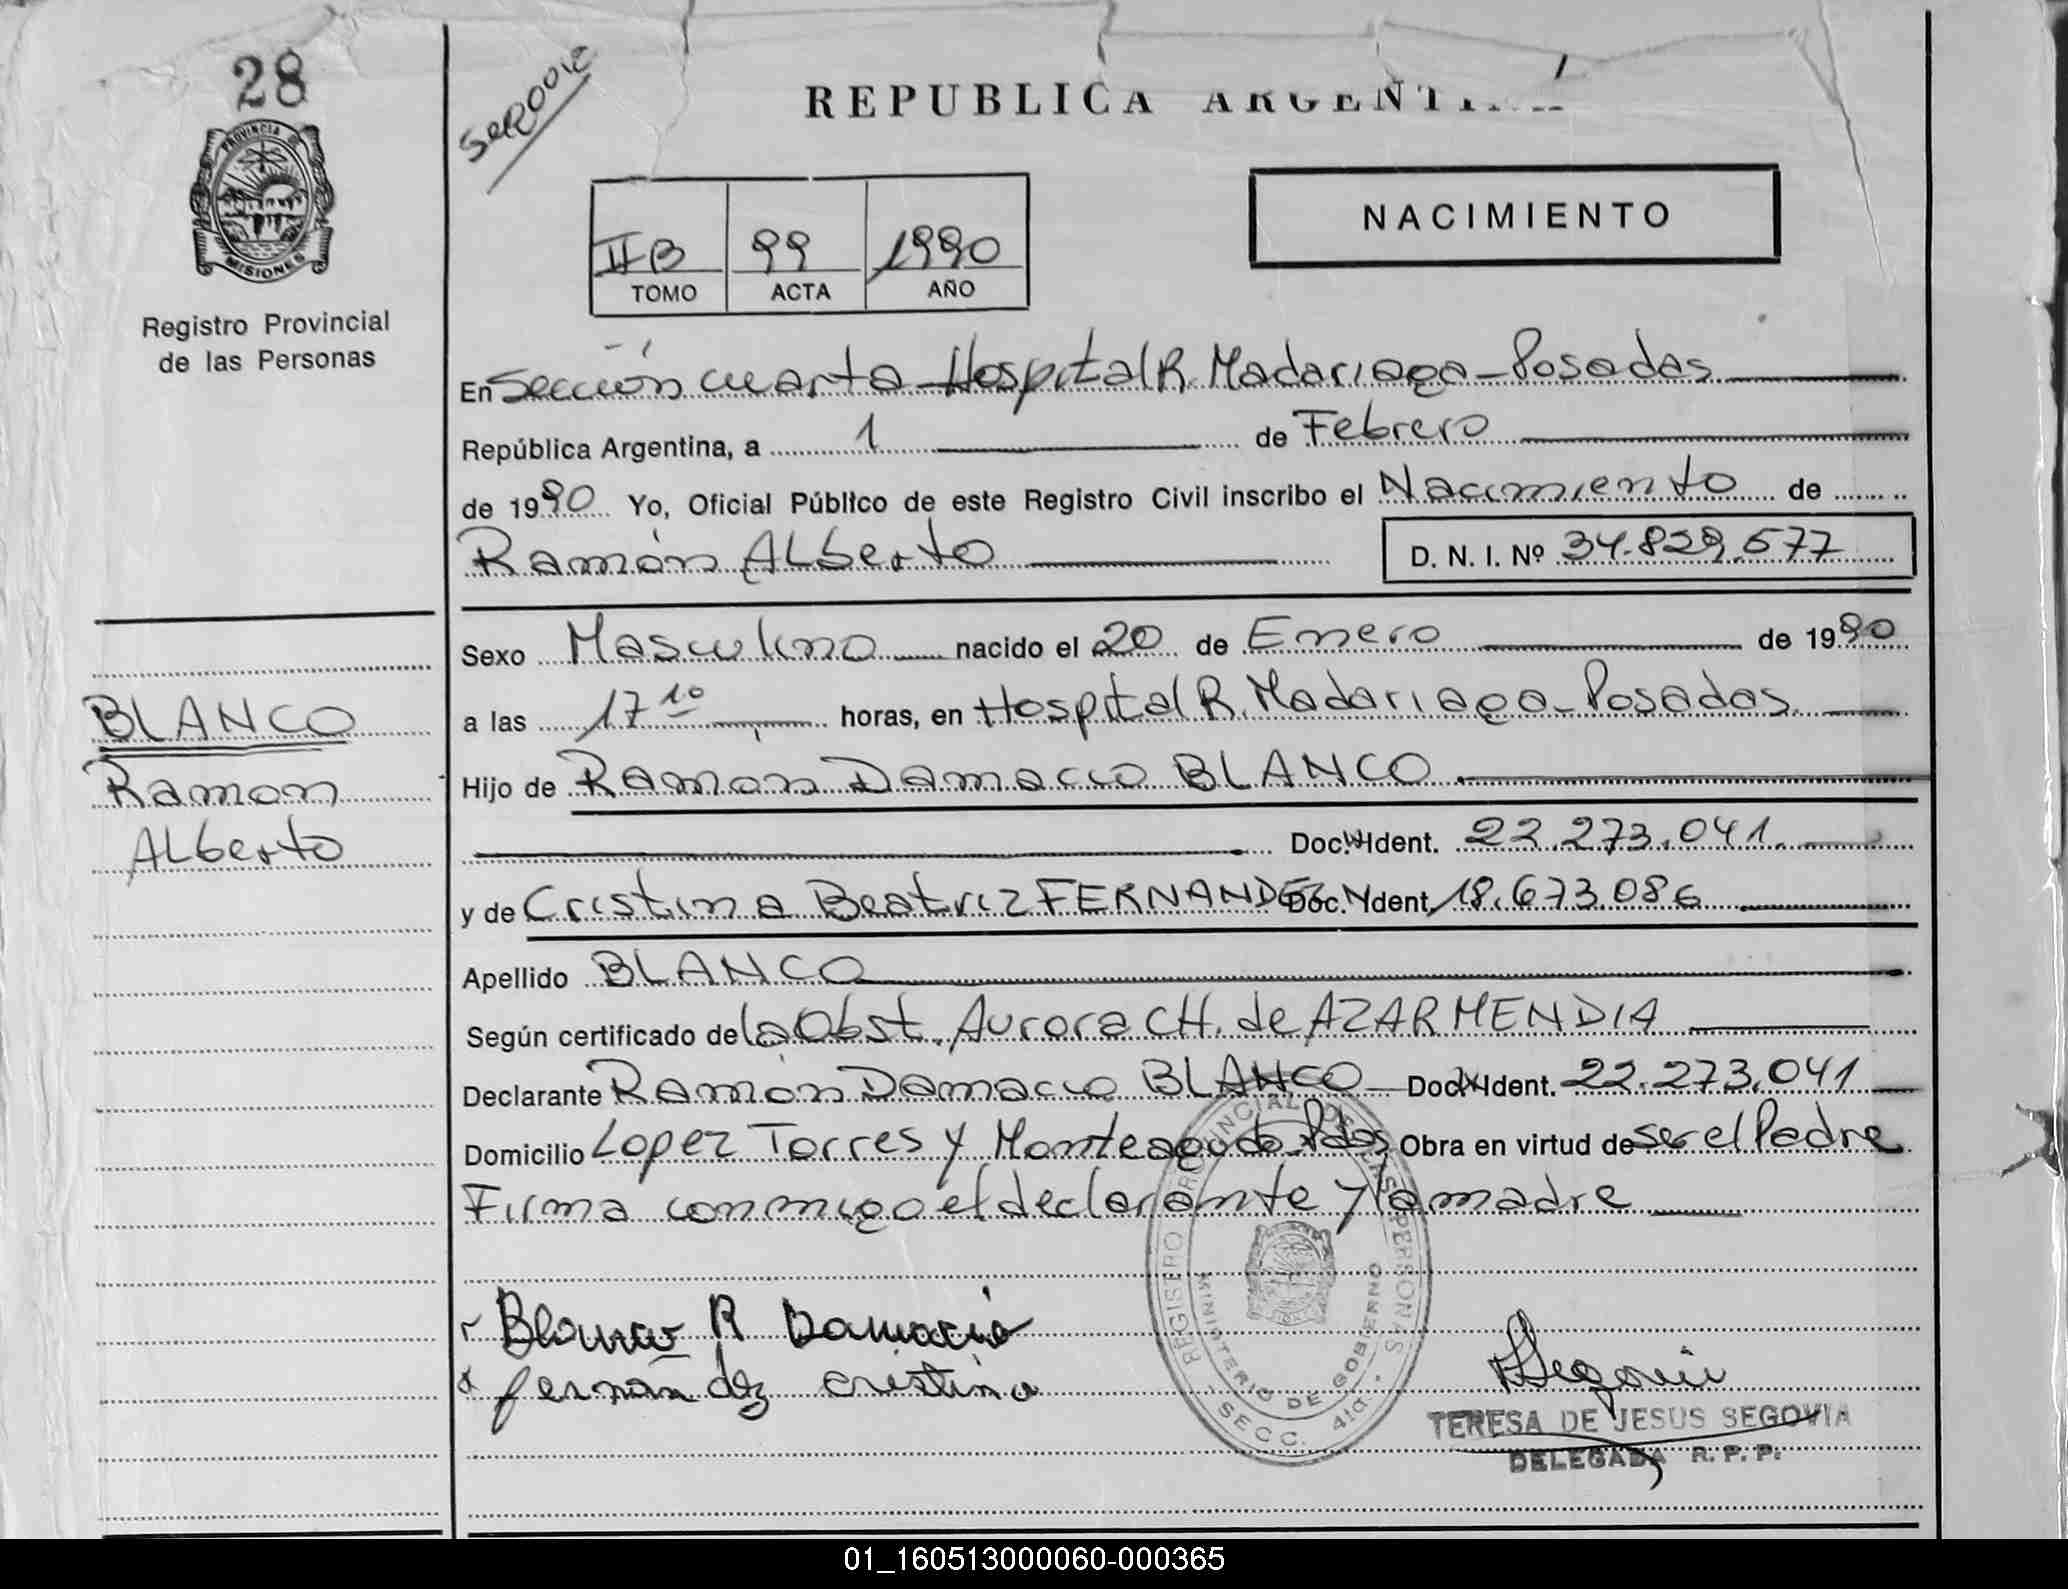 28
PROVINCIA DE
MISIONES
Registro Provincial
de las Personas
BLANCO
Ramon
Alberto
REPUBLICA ARGENTINA
NACIMIENTO
IIB 99 1990
TOMO ACTA AÑO
En Sección cuarta Hospital R. Madariaga - Posadas
República Argentina, a 1 de Febrero
de 1990 Yo, Oficial Público de este Registro Civil inscribo el Nacimiento de
Ramón Alberto D. N. I. Nº 34.829.577
Sexo Masculino nacido el 20 de Enero de 1990
a las 17 10 horas, en Hospital R. Madariaga - Posadas.
Hijo de Ramón Damacio BLANCO
Doc. Ident. 22.273.041.
y de Cristina Beatriz FERNANDEZ Doc. Ident. 18.673.086
Apellido BLANCO
Según certificado de la Obst. Aurora CH. de AZARMENDIA
Declarante Ramón Damacio BLANCO Doc. Ident. 22.273.041
Domicilio Lopez Torres y Monteagudo - Pdas Obra en virtud de ser el Padre
Firma conmigo el declarante y la madre
Blanco R Damacio
fernandez cristina
REGISTRO PROVINCIAL DE LAS PERSONAS
MINISTERIO DE GOBIERNO
SECC. 4ta.
Segovia
TERESA DE JESUS SEGOVIA
DELEGADA R. P. P.
01_160513000060-000365